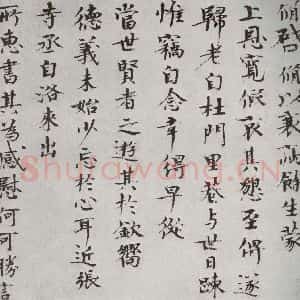 脩啓脩以衰病餘生蒙
上恩寬假哀其懇至俾遂
歸老自杜門里巷與世日踈
惟竊自念幸得早從
當世賢者之遊其於欽嚮
德義未始少忘於心耳近張
寺丞自洛來出
所惠書其為感慰何可勝言
Shufawang.CN